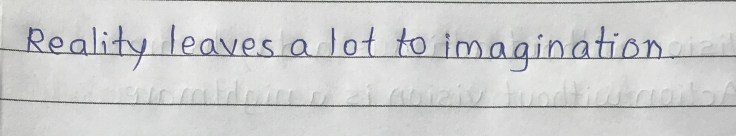 Reality leaves a lot to imagination.